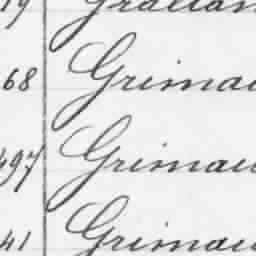 19 Grattan
68 Grimau
497 Grimau
41 Grimau